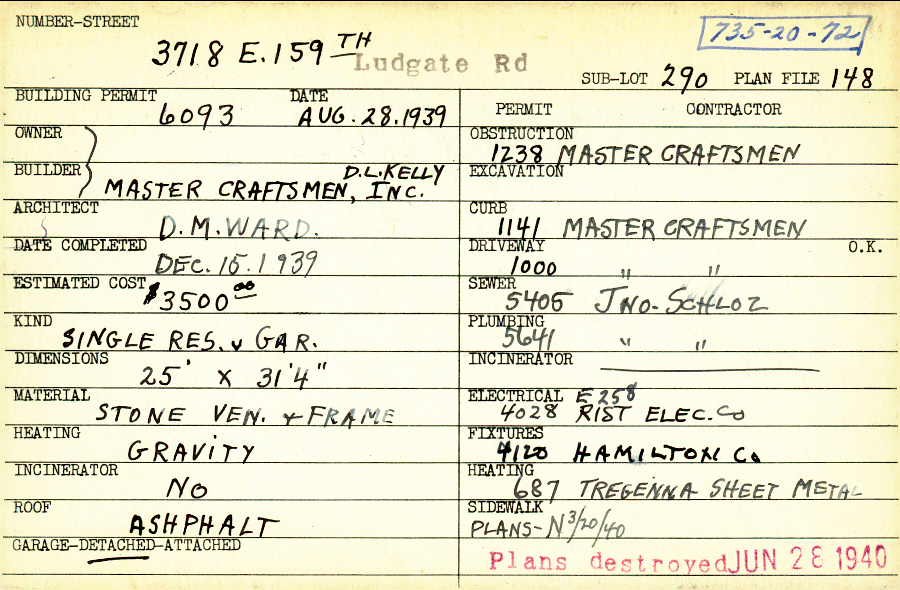 NUMBER-STREET
735-20-72
3718 E. 159TH
Ludgate Rd
SUB-LOT 290 PLAN FILE 148
BUILDING PERMIT 6093 DATE AUG. 28. 1939
OWNER
BUILDER D.L. KELLY
MASTER CRAFTSMEN, INC.
ARCHITECT D. M. WARD.
DATE COMPLETED DEC. 15. 1939
ESTIMATED COST $3500 00
KIND SINGLE RES. & GAR.
DIMENSIONS 25' X 31'4"
MATERIAL STONE VEN. & FRAME
HEATING GRAVITY
INCINERATOR NO
ROOF ASHPHALT
GARAGE-DETACHED-ATTACHED
PERMIT CONTRACTOR
OBSTRUCTION 1238 MASTER CRAFTSMEN
EXCAVATION
CURB 1141 MASTER CRAFTSMEN
DRIVEWAY 1000 " " O.K.
SEWER 5405 JNO. SCHLOZ
PLUMBING 5641 " "
INCINERATOR
ELECTRICAL E258
4028 RIST ELEC. CO
FIXTURES 4120 HAMILTON CO
HEATING 687 TREGENNA SHEET METAL
SIDEWALK
PLANS-N 3/20/40
Plans destroyed JUN 28 1940